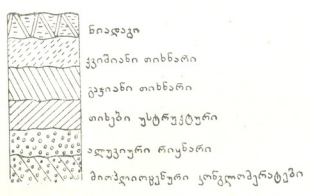 ნიადაგი
ქვიშიანი თიხნარი
გაჯიანი თიხნარი
თიხები უსტრუქტური
ალუვიური რიყნარი
მიოპლიოცენური კონგლომერატები